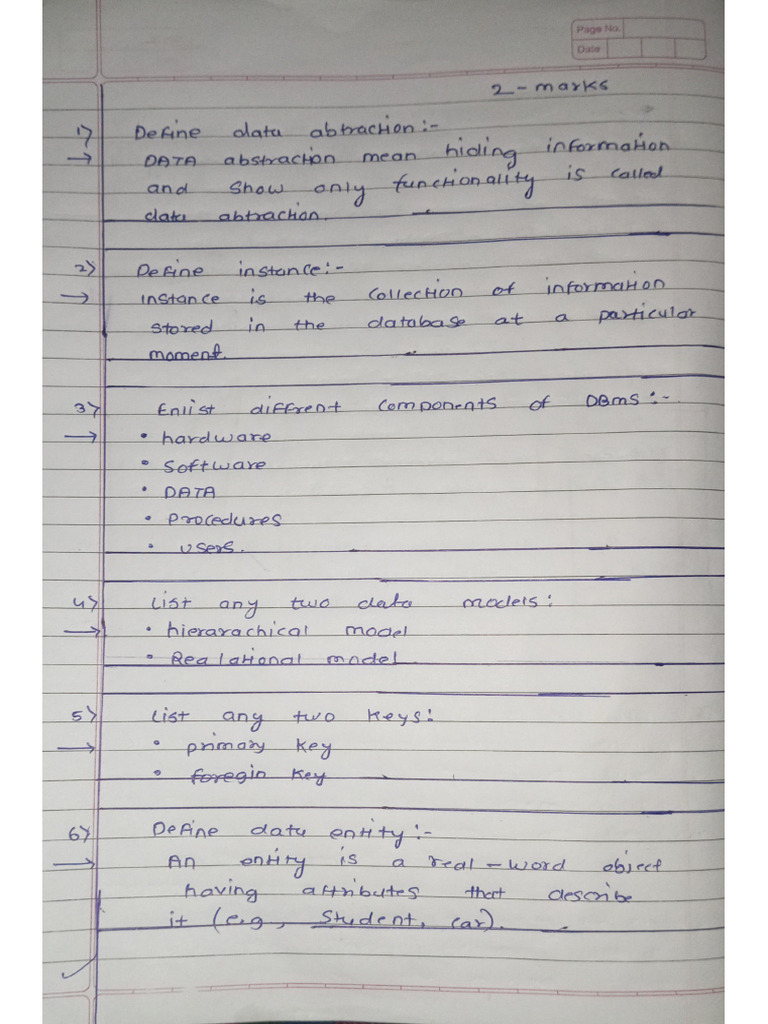 Page No.
Date
2 - marks
1) Define data abtraction :-
→ DATA abstraction mean hiding information
and show only functionality is called
data abtraction.
2) Define instance :-
→ instance is the collection of information
stored in the database at a particular
moment.
3) Enlist diffrent components of DBMS :-
→ • hardware
• Software
• DATA
• Procedures
• users.
4) List any two data models :
→ • hierarachical model
• Realational model
5) List any two keys :
→ • primary key
• foregin key
6) Define data entity :-
→ An entity is a real-word object
having attributes that describe
it (e.g, Student, car).